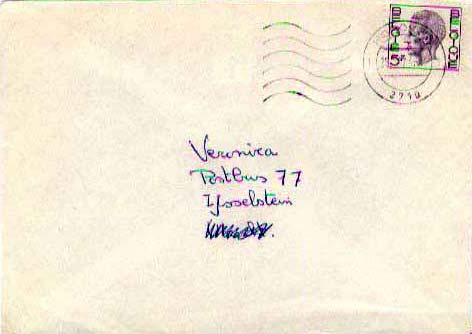 BELGIE-BELGIQUE
5F
2710
Veronica
Postbus 77
IJsselstein